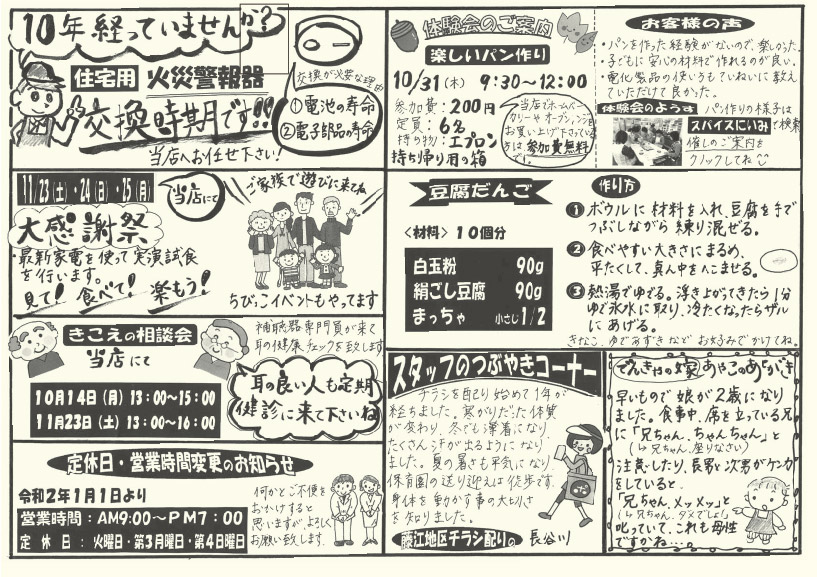 10年経っていませんか?
住宅用 火災警報器
交換時期です!!
当店へお任せ下さい!
交換が必要な理由
①電池の寿命
②電子部品の寿命
体験会のご案内
楽しいパン作り
10/31(木) 9:30~12:00
参加費:200円
定員:6名
持ち物:エプロン
持ち帰り用の箱
当店でホームベー
カリーやオーブンレンジを
お買い上げ下さっている
方は参加費無料
です。
お客様の声
・パンを作った経験がないので、楽しかった。
・子どもに安心の材料で作れるのが良い。
・電化製品の使いうもていねいに教え
ていただけて良かった。
体験会のようす
パン作りの様子は
スパイスにいみで検索
催しのご案内を
クリックしてね
11/23(土)・24(日)・25(月)
当店にて
大感謝祭
・最新家電を使って実演試食
を行います。
見て! 食べて! 楽もう!
ご家族で遊びに来てね
ちびっこイベントもやってます
豆腐だんご
<材料>10個分
白玉粉 90g
絹ごし豆腐 90g
まっちゃ 小さじ1/2
作り方
① ボウルに材料を入れ、豆腐を手で
つぶしながら練り混ぜる。
② 食べやすい大きさにまるめ、
平たくして、真ん中をへこませる。
③ 熱湯でゆでる。浮き上がってきたら1分
ゆで氷水に取り、冷たくなったらザル
にあげる。
きなこ、ゆであずきなどお好みでかけてね。
きこえの相談会
当店にて
補聴器専門員が来て
耳の健康チェックを致します
10月14日(月)13:00~15:00
11月23日(土)13:00~16:00
耳の良い人も定期
健診に来て下さいね
定休日・営業時間変更のお知らせ
令和2年1月1日より
営業時間:AM9:00~PM7:00
定休日:火曜日・第3月曜日・第4日曜日
何かとご不便を
おかけすると
思いますが、よろしく
お願い致します。
スタッフのつぶやきコーナー
チラシを配り始めて1年が
経ちました。寒がりだった体質
が変わり、冬でも薄着になり
たくさん汗が出るようになり
ました。夏の暑さも平気になり
保育園の送り迎えは徒歩です。
身体を動かす事の大切さ
を知りました。
藤江地区チラシ配りの 長谷川
でんきやの嫁 あやこのあとがき
早いもので娘が2歳になり
ました。食事中、席を立っている兄
に「兄ちゃん、ちゃんちゃん」と
(↳兄ちゃん、座りなさい)
注意したり、長男と次男がケンカ
をしていると、
「兄ちゃん、メッメッ」と
(↳兄ちゃん、ダメでしょ)
叱っていて、これも母性
ですかね…。